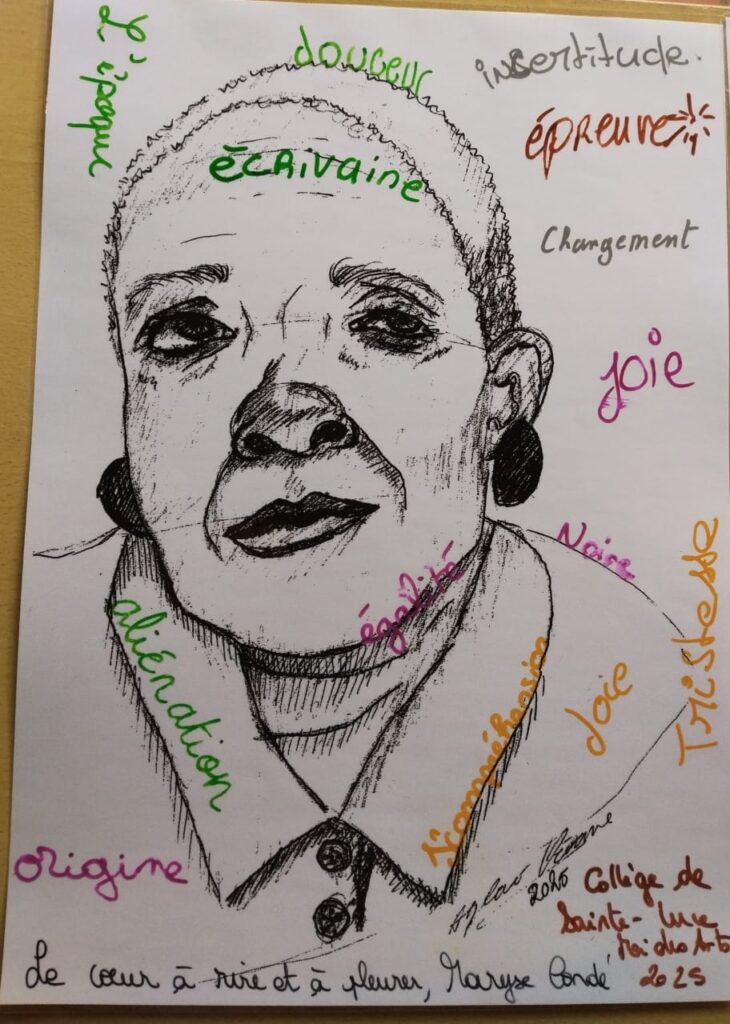 L'époque
douceur
inscertitude.
épreuve
écrivaine
Changement
joie
Noire
égalité
Tristesse
aliénation
Joie
l'icompréhension
origine
2025
Collège de
Sainte-Luce
Mai des Arts
2025
Le cœur à rire et à pleurer, Maryse Condé